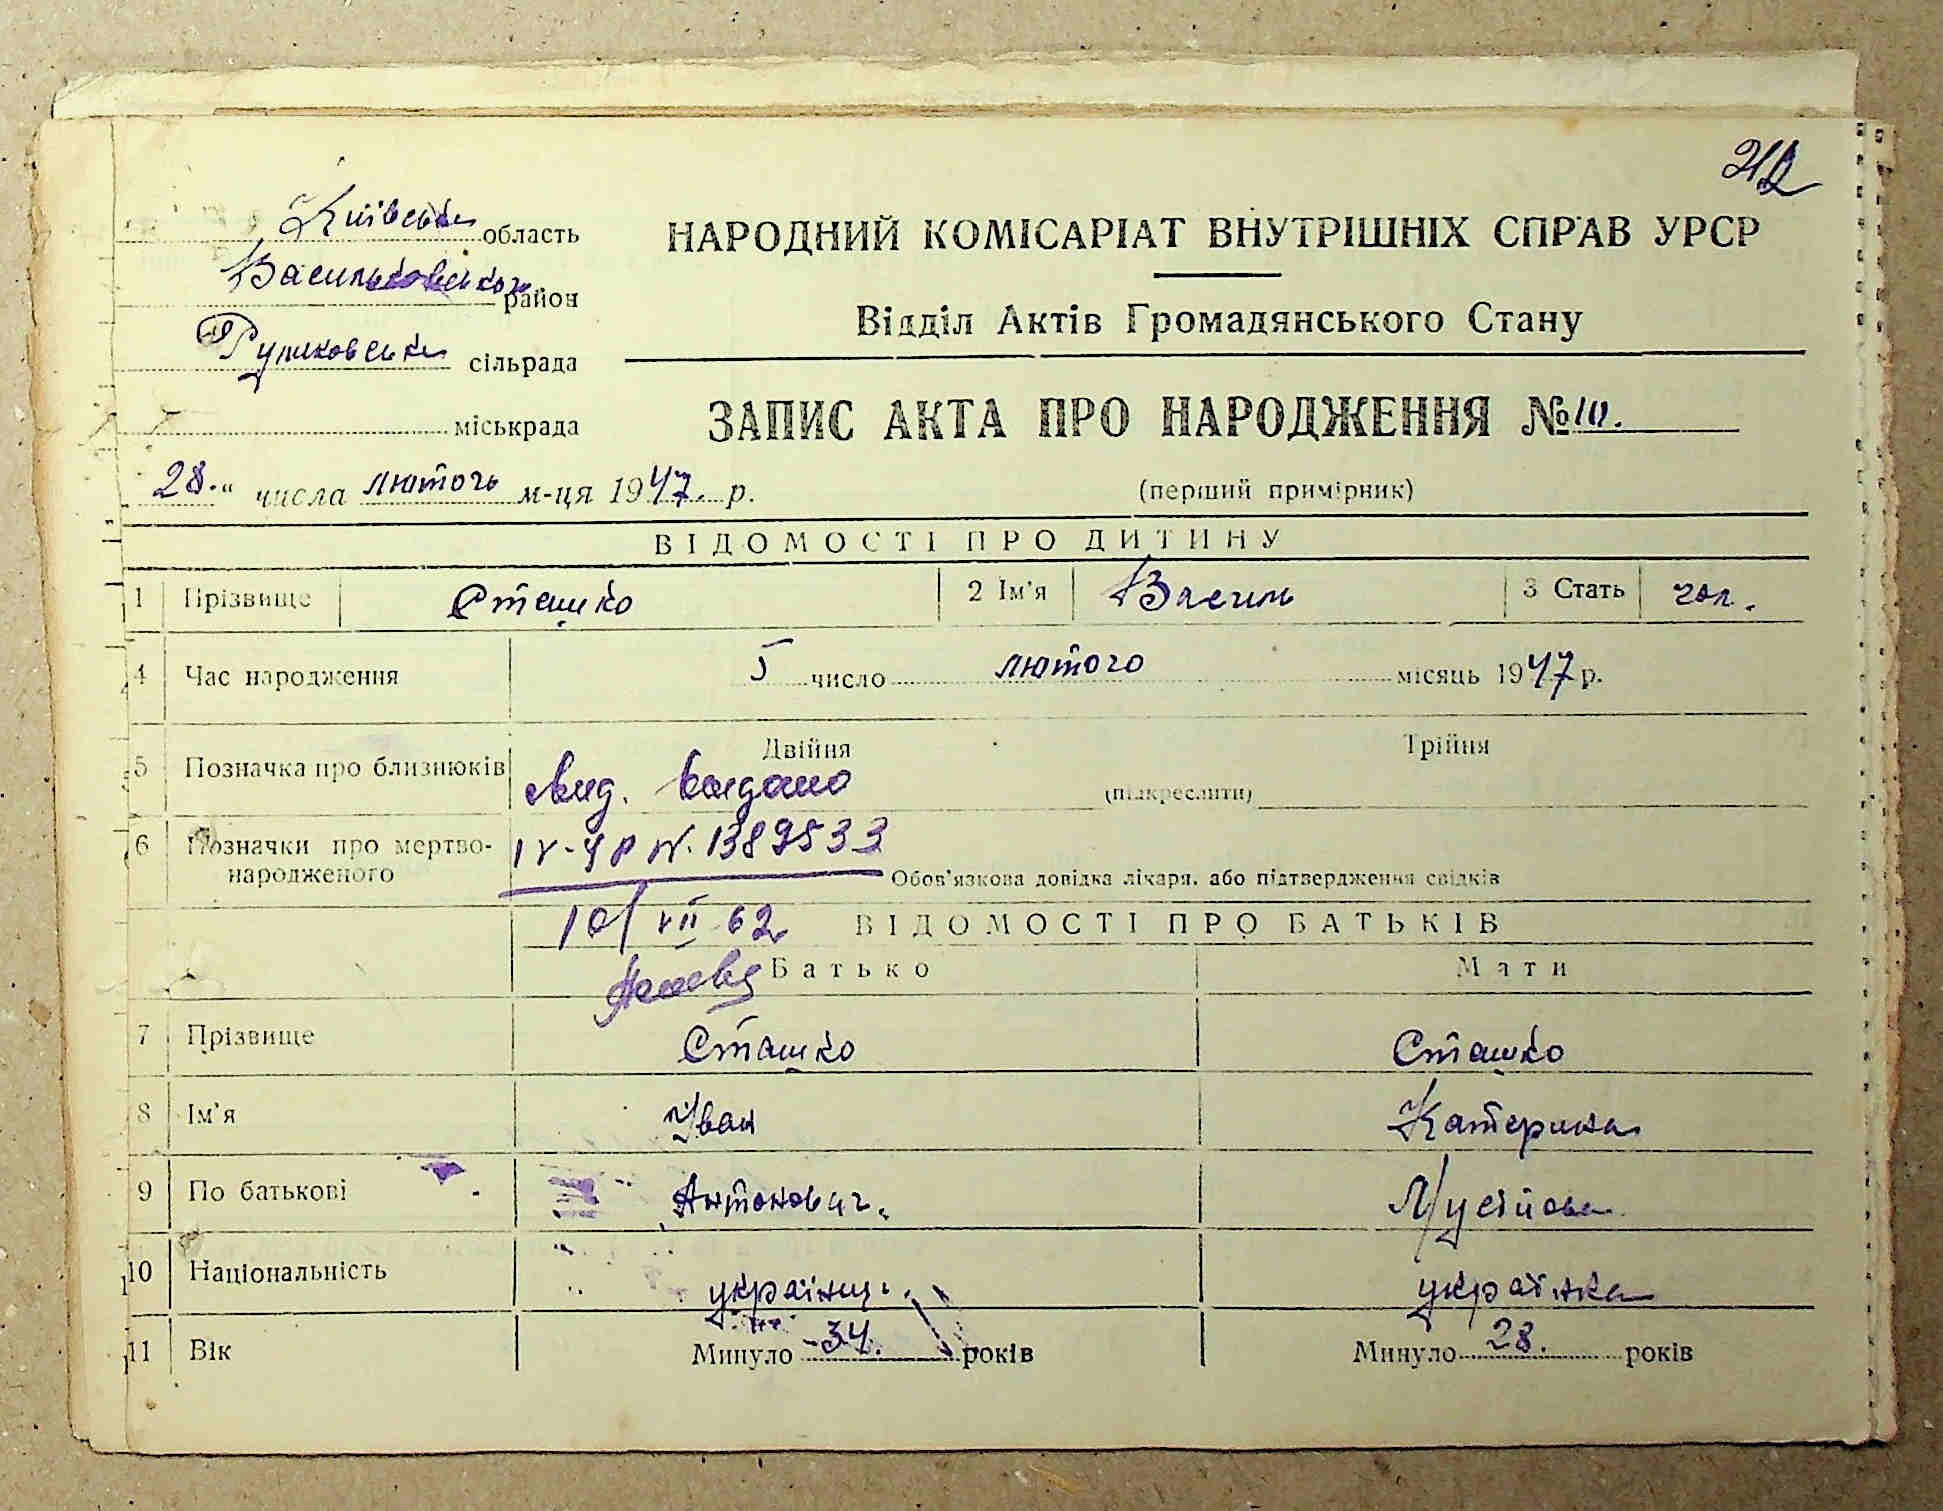 212
Київська область
Васильковського район
сільрада
міськрада
НАРОДНИЙ КОМІСАРІАТ ВНУТРІШНІХ СПРАВ УРСР
Відділ Актів Громадянського Стану
ЗАПИС АКТА ПРО НАРОДЖЕННЯ № 10.
28." числа лютого м-ця 1947. р.
(перший примірник)
ВІДОМОСТІ ПРО ДИТИНУ
1 Прізвище Сташко 2 Ім'я Василь 3 Стать чол.
4 Час народження 5 число лютого місяць 1947 р.
5 Позначка про близнюків Двійня Трійня
(підкреслити)
6 Позначки про мертво-
народженого
IV-УР №. 1389533
Обов'язкова довідка лікаря, або підтвердження свідків
10/VII 62
ВІДОМОСТІ ПРО БАТЬКІВ
Батько Мати
7 Прізвище Сташко Сташко
8 Ім'я Іван Катерина
9 По батькові Антонович. Мусіївна
10 Національність українец. українка
11 Вік Минуло 34. років Минуло 28. років